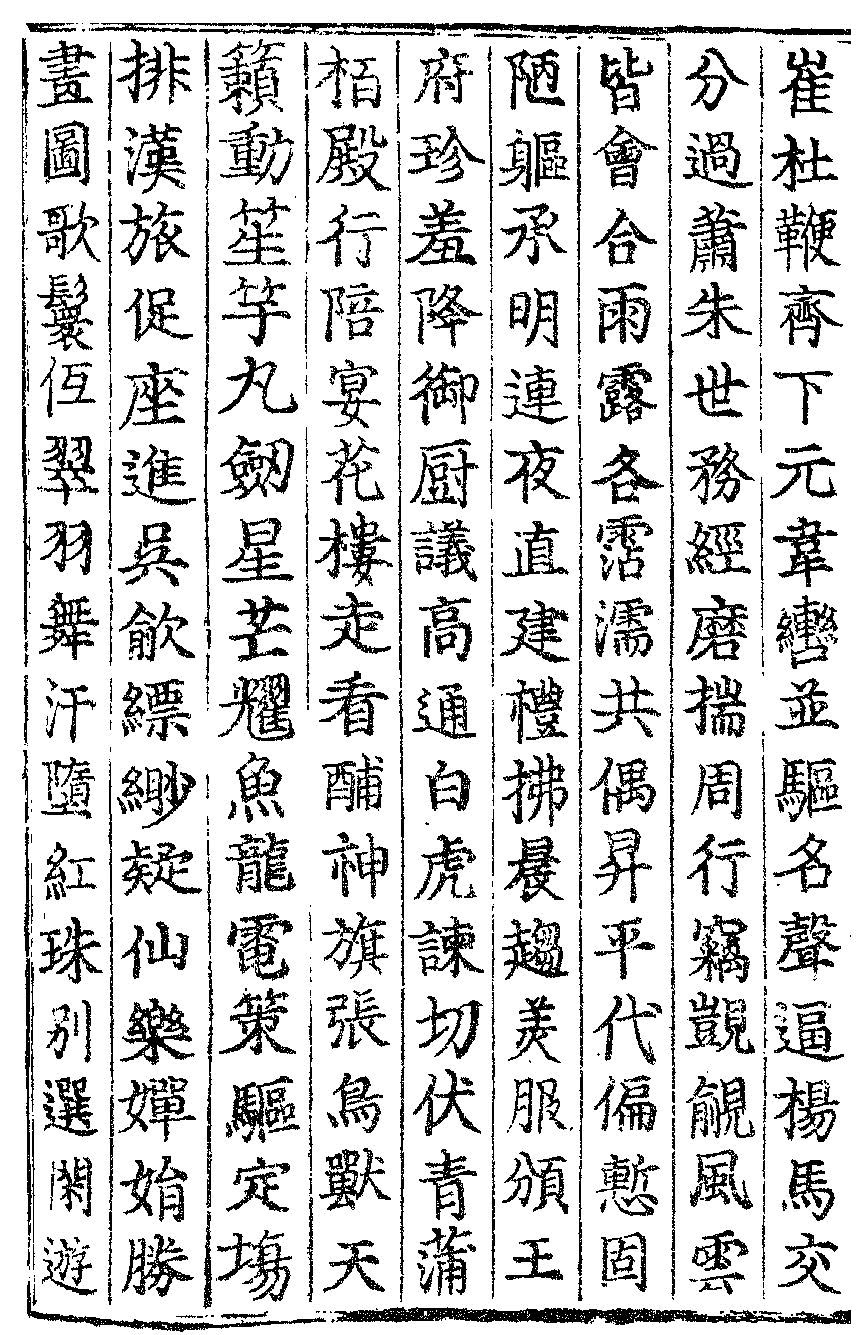 崔杜鞭齊下元韋轡並驅名聲逼楊馬交
分過蕭朱世務經磨揣周行竊覬覦風雲
皆會合雨露各霑濡共偶昇平代偏慙固
陋軀承明連夜直建禮拂晨趨羙服頒王
府珍羞降御厨議高通白虎諫切伏青蒲
栢殿行陪宴花樓走看酺神旗張鳥獸天
籟動笙竽丸劒星芒耀魚龍電策驅定塲
排漢旅促座進吳歈縹緲疑仙樂嬋娟勝
畫圖歌鬟低翠羽舞汗墮紅珠別選閑遊